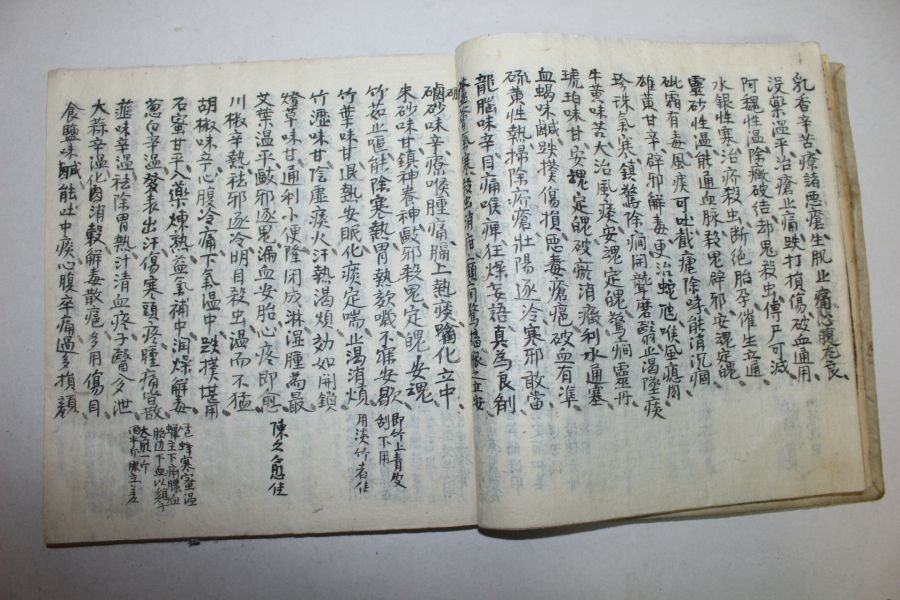 乳香辛苦療諸惡瘡生肌止痛心腹尤良
沒藥溫平治瘡止痛跌打損傷破血通用
阿魏性溫除癥破結却鬼殺虫傳尸可滅
水銀性寒治疥殺虫断絕胎孕催生立通
靈砂性溫能通血脉殺鬼辟邪安魂定魄
砒霜有毒風痰可吐截瘧除哮能消沉痼
雄黃甘辛辟邪解毒更治蛇虺喉風瘜肉
珍珠氣寒鎮驚除癎開聾磨翳止渴墜痰
牛黃味苦大治風痰安魂定魄驚癎靈丹
琥珀味甘安魂定魄破瘀消癥利水通塞
血竭味鹹跌撲傷損惡毒瘡疽破血有準
硫黃性熱掃除疥瘡壯陽逐冷寒邪敢當
龍腦味辛目痛喉痺狂燥妄語真為良劑
硇砂味辛療喉腫痛膈上熱痰
朱砂味甘鎮神養神敺邪殺鬼定魄安魂
竹茹止嘔能除寒熱胃熱咳噦不寐安歇
即竹上青皮
刮下用
竹葉味甘退熱安眠化痰定喘止渴消煩
用淡竹者佳
竹瀝味甘陰虛痰火汗熱渴煩効如開鎖
燈草味甘通利小便隆閉成淋湿腫為最
艾葉溫平敺邪逐鬼漏血安胎心疼即愈
陳久愈佳
川椒辛熱祛邪逐冷明目殺虫溫而不猛
胡椒味辛心腹冷痛下氣溫中跌撲堪用
石蜜甘平入藥煉熟益氣補中润燥解毒
葱白辛溫發表出汗傷寒頭疼腫痛皆散
韮味辛溫祛除胃熱汁清血疼子醫夢泄
大蒜辛溫化肉消穀解毒散癰多用傷目
食鹽味鹹能吐中痰心腹卒痛過多損顏